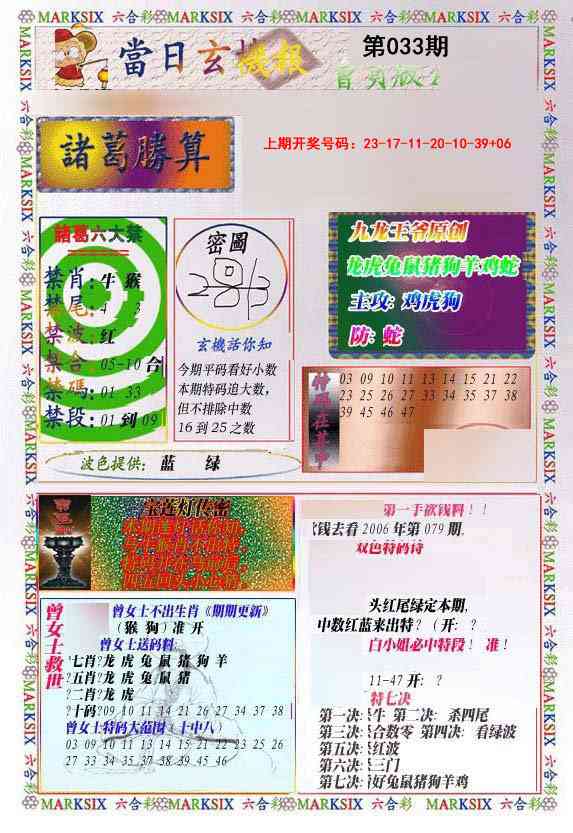 MARKSIX 六合彩 MARKSIX 六合彩 MARKSIX 六合彩 MARKSIX 六合彩 MARKSIX
當日玄機報
第033期
諸葛勝算
上期开奖号码：23-17-11-20-10-39+06
諸葛六大禁
禁肖：牛 猴
禁尾：4 3
禁波：红
禁合：05-10 合
禁碼：01 33
禁段：01 到 09
密圖
玄機話你知
今期平码看好小数
本期特码追大数，
但不排除中数
16 到 25 之数
九龙王爷原创
龙虎兔鼠猪狗羊鸡蛇
主攻：鸡虎狗
防：蛇
03 09 10 11 13 14 15 21 22
23 25 26 27 33 34 35 37 38
39 45 46 47
波色提供： 蓝 绿
宝莲灯传密
第一手欲钱料！！
钱去看 2006 年第 079 期，
双色特码诗
头红尾绿定本期，
中数红蓝来出特？（开：？
白小姐必中特段！ 准！
11-47 开：？
特七决
第一决:杀牛 第二决: 杀四尾
第三决:杀合数零 第四决: 看绿波
第五决:杀红波
第六决:杀三门
第七决:看好兔鼠猪狗羊鸡
曾女士救世
曾女士不出生肖《期期更新》
（猴 狗）准 开
曾女士送码料:
七肖?龙 虎 兔 鼠 猪 狗 羊
?五肖?龙 虎 兔 鼠 猪
?二肖?龙 虎
?十码?09 10 11 14 21 26 27 34 37 38
曾女士特码大范围（十中八）
03 09 10 11 13 14 15 21 22 23 25 26
27 33 34 35 37 38 39 45 46
MARKSIX 六合彩 MARKSIX 六合彩 MARKSIX 六合彩 MARKSIX 六合彩 MARKSIX